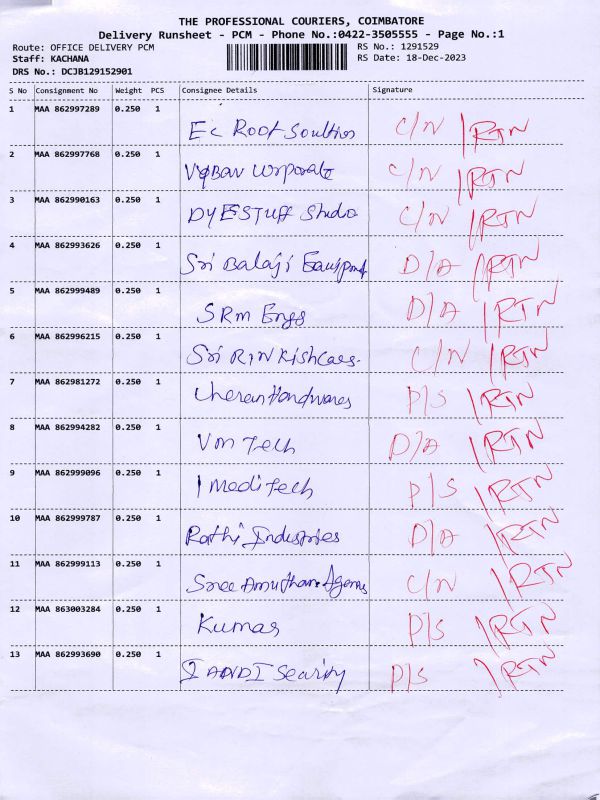 THE PROFESSIONAL COURIERS, COIMBATORE
Delivery Runsheet - PCM - Phone No.:0422-3505555 - Page No.:1
Route: OFFICE DELIVERY PCM RS No.: 1291529
Staff: KACHANA RS Date: 18-Dec-2023
DRS No.: DCJB129152901
S No Consignment No Weight PCS Consignee Details Signature
1 MAA 862997289 0.250 1
Ec Roof Soultios C/N /RTN
2 MAA 862997768 0.250 1
C/N /RTN
3 MAA 862990163 0.250 1
DYESTUFF Studio C/N /RTN
4 MAA 862993626 0.250 1
Sri Balaji D/A /RTN
5 MAA 862999489 0.250 1
SRM Engs D/A /RTN
6 MAA 862996215 0.250 1
Sri C/N /RTN
7 MAA 862981272 0.250 1
Cheran Hardwares P/S /RTN
8 MAA 862994282 0.250 1
VM Tech D/A /RTN
9 MAA 862999096 0.250 1
I Meditech P/S /RTN
10 MAA 862999787 0.250 1
Rathi Industries D/A /RTN
11 MAA 862999113 0.250 1
Sree Amuthan Agens C/N /RTN
12 MAA 863003284 0.250 1
Kumar P/S /RTN
13 MAA 862993690 0.250 1
P/S /RTN